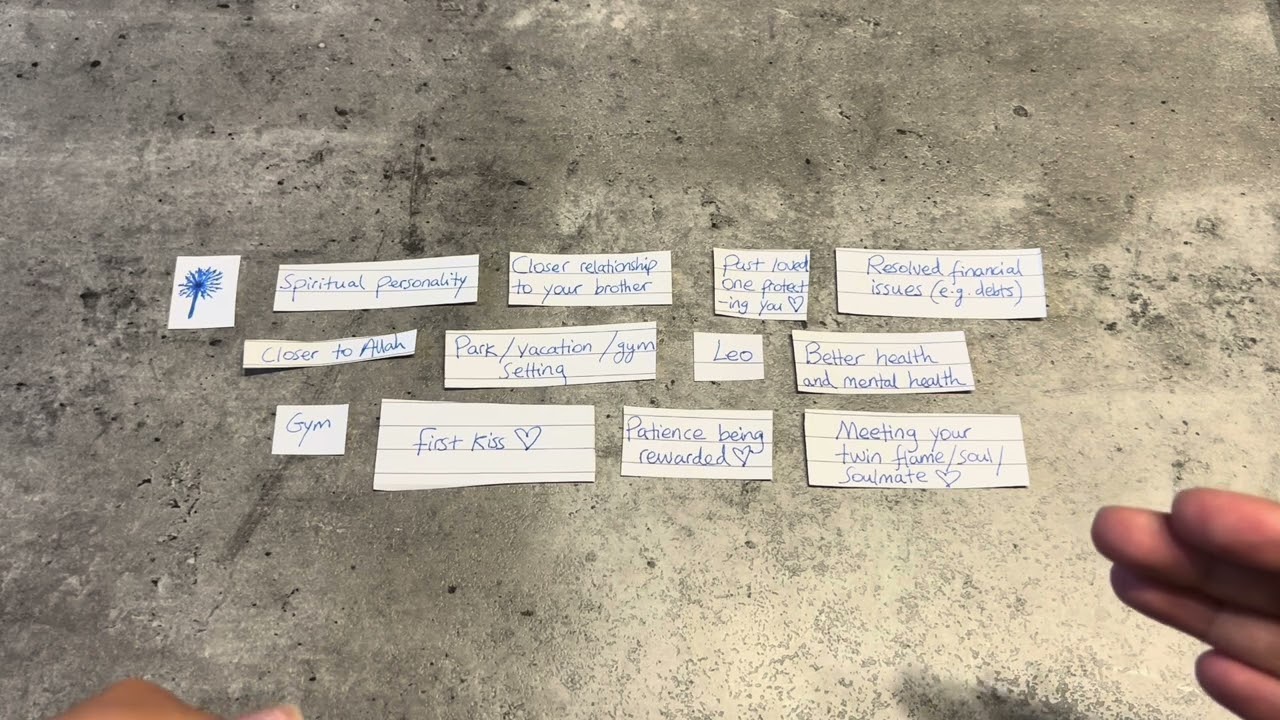 Spiritual personality
Closer relationship
to your brother
Past loved
one protect
-ing you♡
Resolved financial
issues (e.g. debts)
Closer to Allah
Park/vacation/gym
setting
Leo
Better health
and mental health
Gym
first kiss ♡
Patience being
rewarded♡
Meeting your
twin flame/soul/
Soulmate ♡